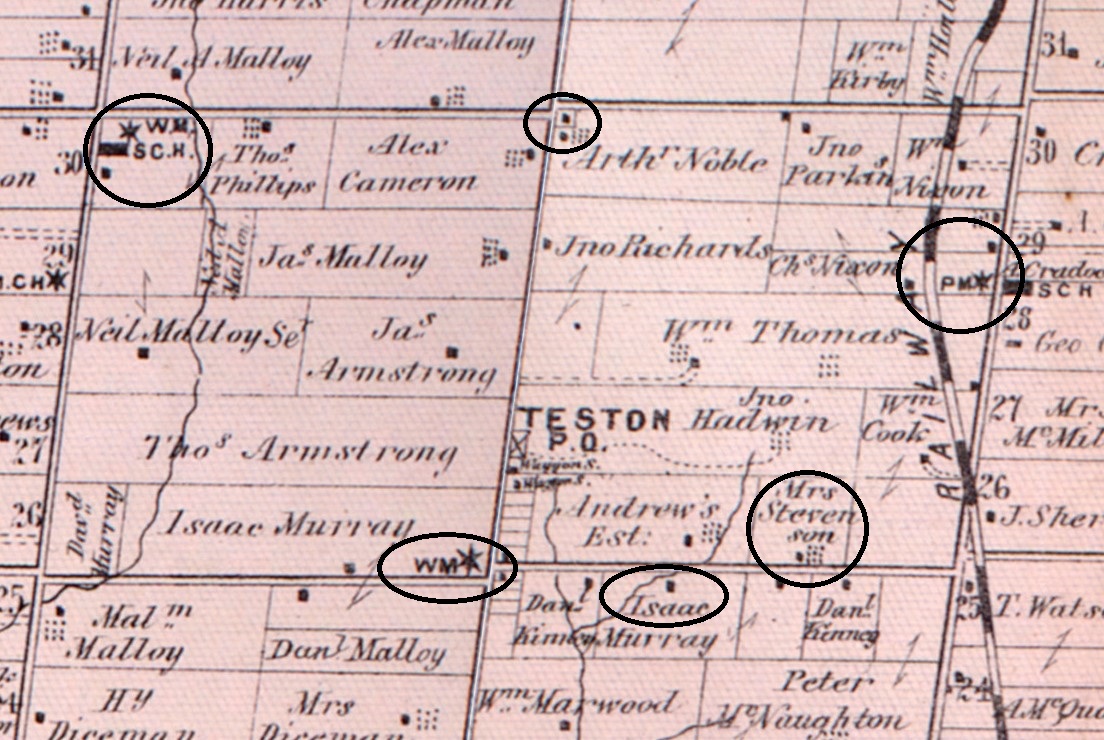 Chapman
Alex Malloy
Neil A Malloy
31
Wm
Kirby
31
W.M.
SCH.
30
Thos
Phillips
Alex
Cameron
Arthr Noble
Jno
Parkin
Wm
Nixon
30
on
29
Jas Malloy
Jno Richards
Chs Nixon
PM
29
SCH
28
Neil Malloy Se
Jas
Armstrong
Wm Thomas
28
Geo
RAILWAY
TESTON
P.O.
Jno.
Hadwin
Wm
Cook
27
Mrs
McMil
27
Thos Armstrong
26
Davd
Murray
Isaac Murray
WM
Andrew's
Est.
Mrs
Steven
son
26
J. Sher
25
Malm
Malloy
Danl Malloy
Danl
Kinney
Isaac
Murray
Danl
Kinney
25
T. Wats
Hy
Diceman
Mrs
Diceman
Wm Marwood
Peter
McNaughton
24
A. McQua